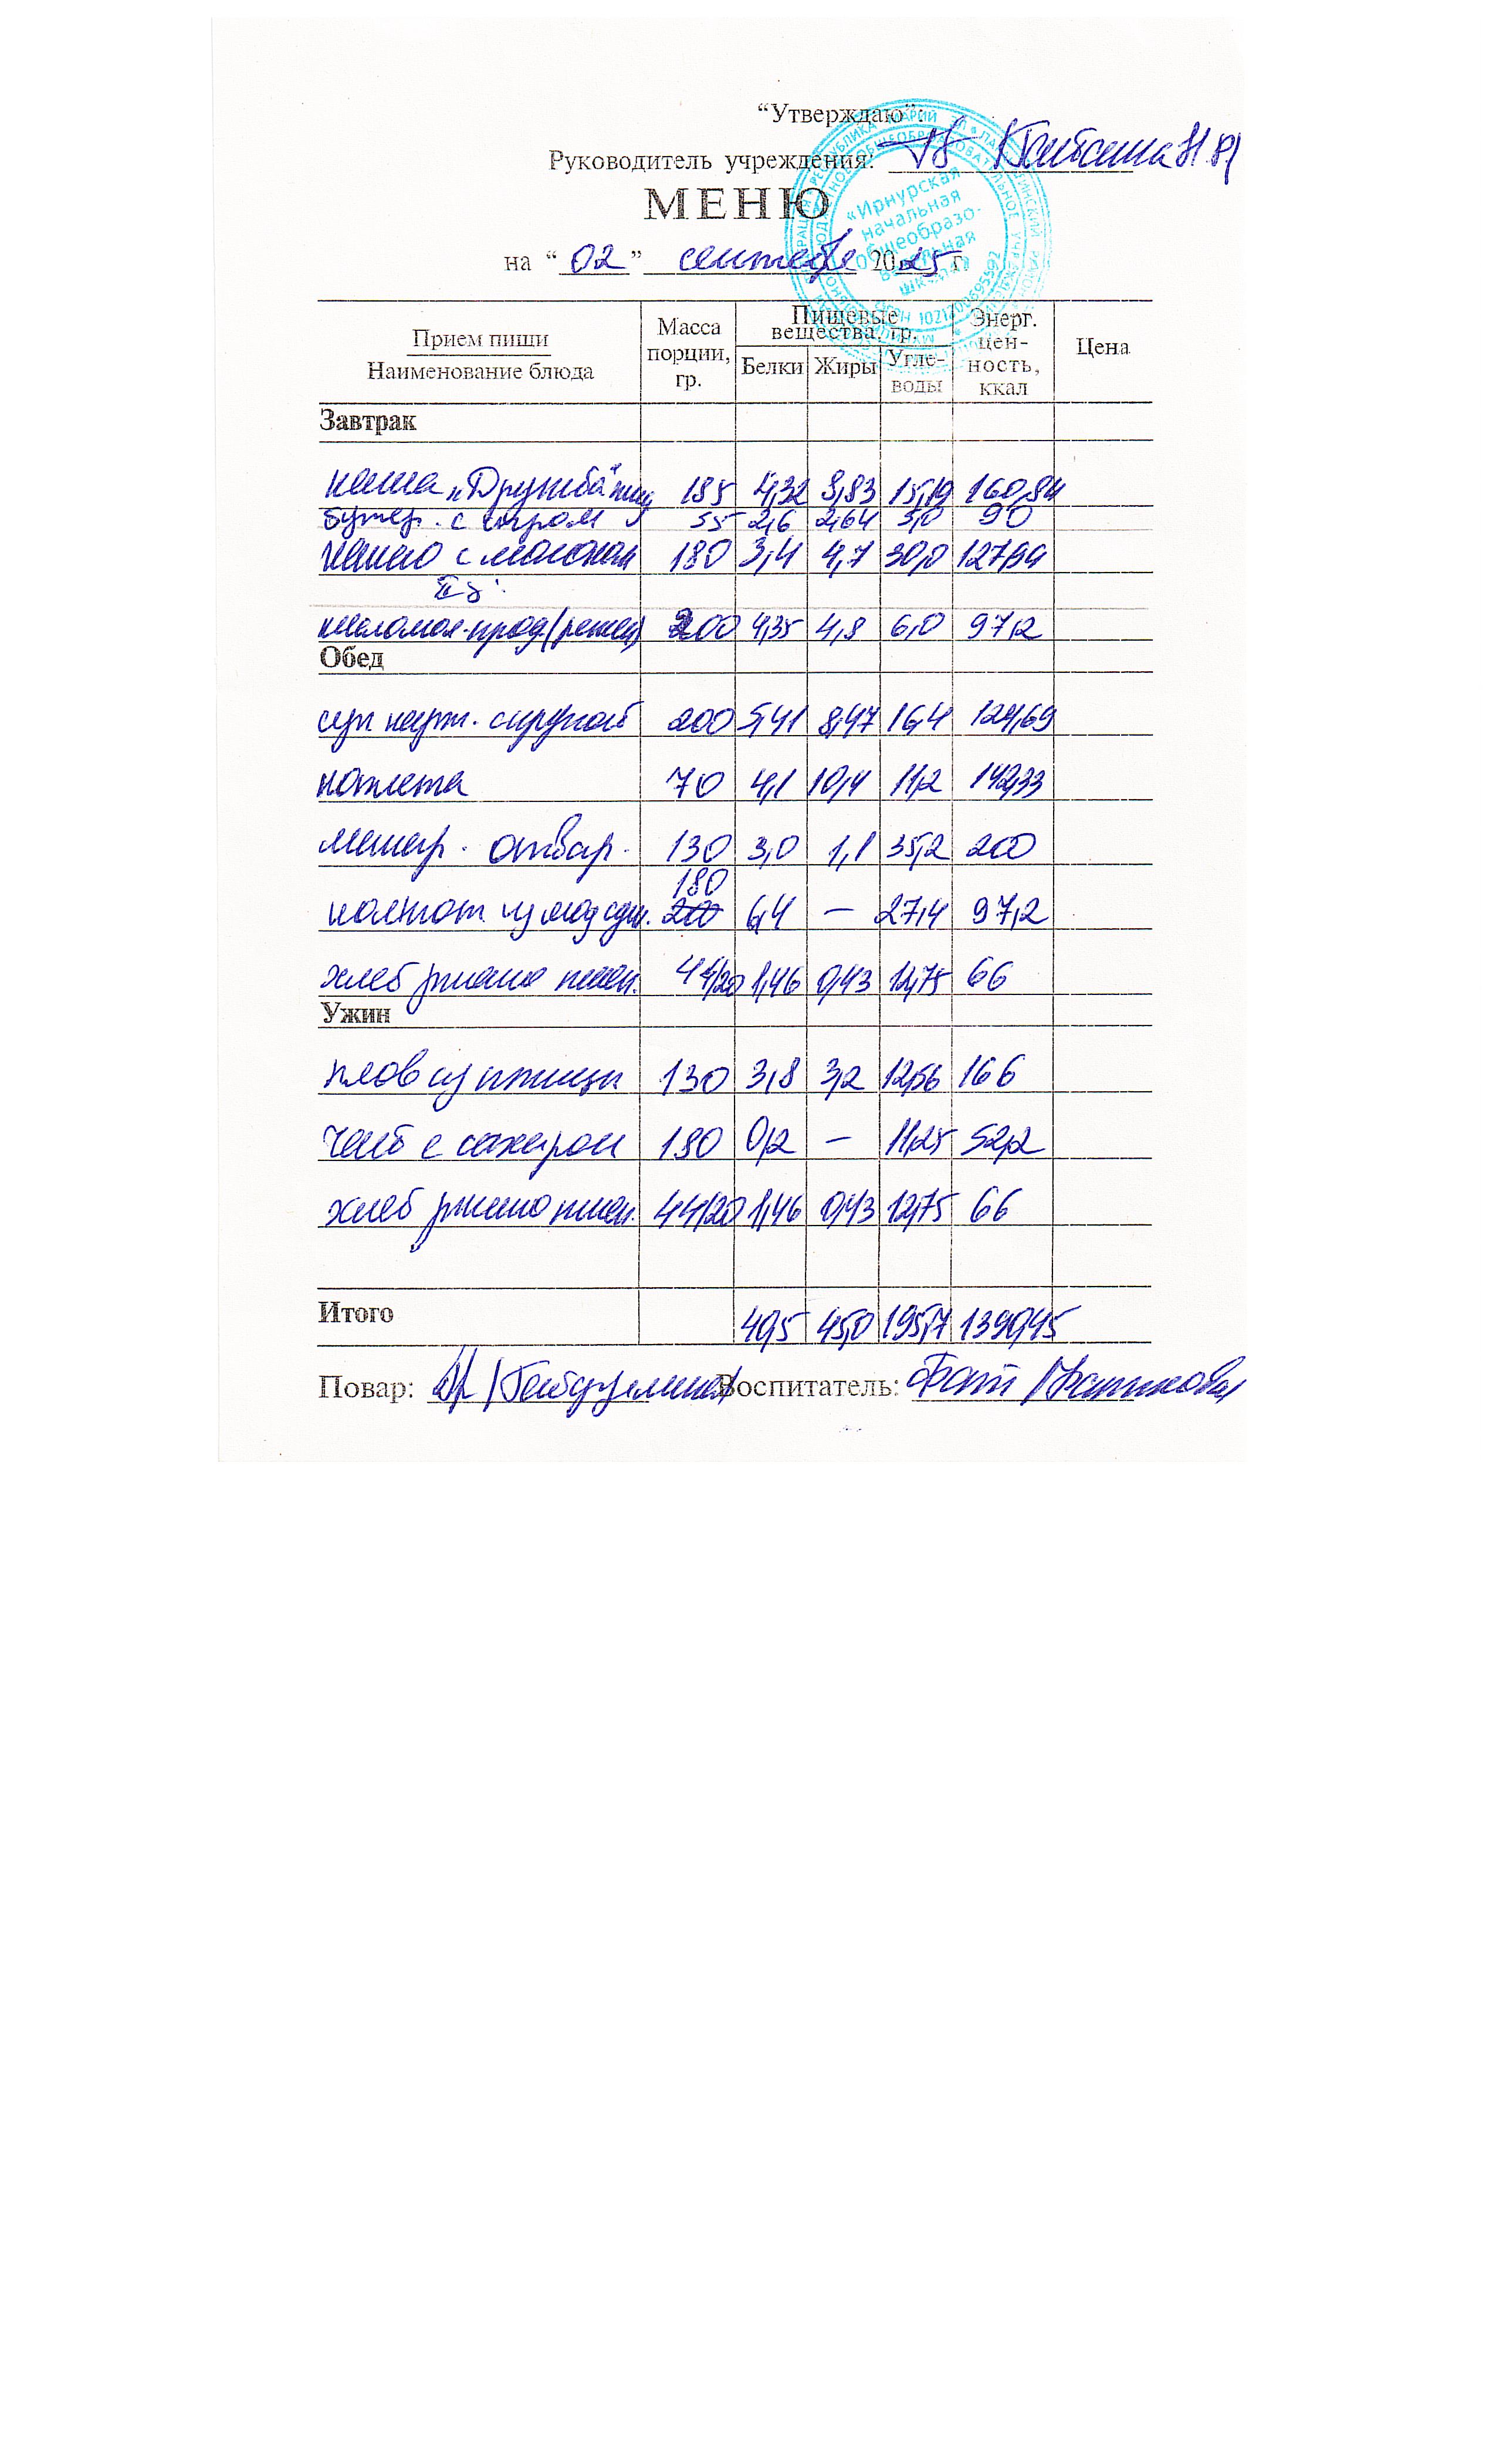 “Утверждаю”:
Руководитель учреждения:
МЕНЮ
на “02” сентября 2025 г.
«Ирнурская
начальная
общеобразо-
вательная
школа»
Прием пищи
Наименование блюда
Масса порции, гр.
Пищевые вещества, гр.
Белки Жиры Углеводы
Энерг. ценность, ккал
Цена
Завтрак
каша „Дружба" 185 4,32 3,83 15,19 160,84
бутер. с сыром 55 2,6 2,64 5,0 90
какао с молоком 180 3,4 4,7 30,0 127,94
IIз.
кисломол. прод. 200 4,35 4,8 6,0 97,2
Обед
суп карт. с крупой 200 5,41 8,47 16,4 124,69
котлета 70 4,1 10,4 11,2 142,33
макар. отвар. 130 3,0 1,1 35,2 200
180
компот 200 6,4 — 27,4 97,2
хлеб ржано пшен. 44/20 1,46 0,43 12,75 66
Ужин
плов из птицы 130 3,8 3,2 12,56 166
чай с сахаром 180 0,2 — 11,25 52,2
хлеб ржано пшен. 44/20 1,46 0,43 12,75 66
Итого 40,5 45,0 195,7 1390,45
Повар: Воспитатель: